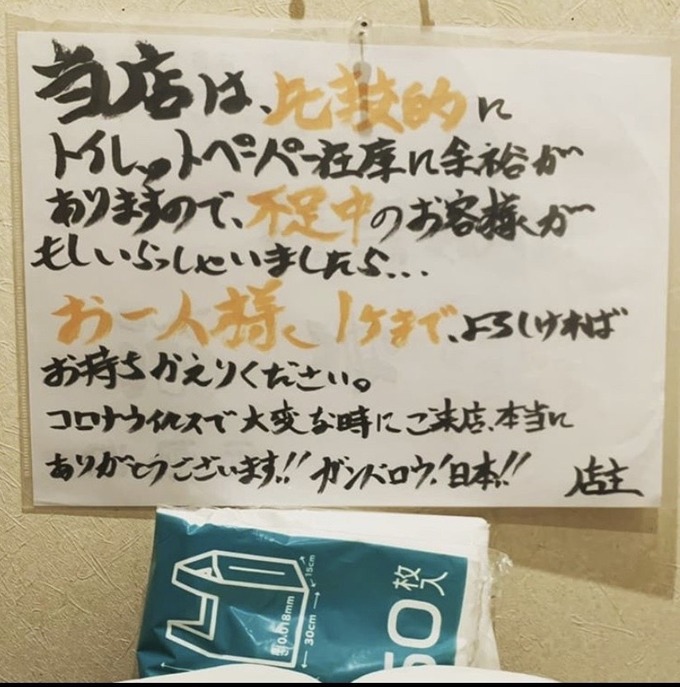 当店は、比較的に
トイレットペーパー在庫に余裕が
ありますので、不足中のお客様が
もしいらっしゃいましたら...
お一人様、1ケまで、よろしければ
お持ちかえりください。
コロナウイルスで大変な時にご来店、本当に
ありがとうございます!! ガンバロウ!日本!!
店主
15cm
0.018mm
30cm
枚入
50